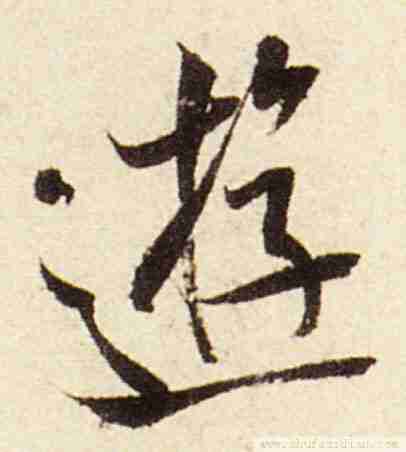 遊
www.shufazidian.com